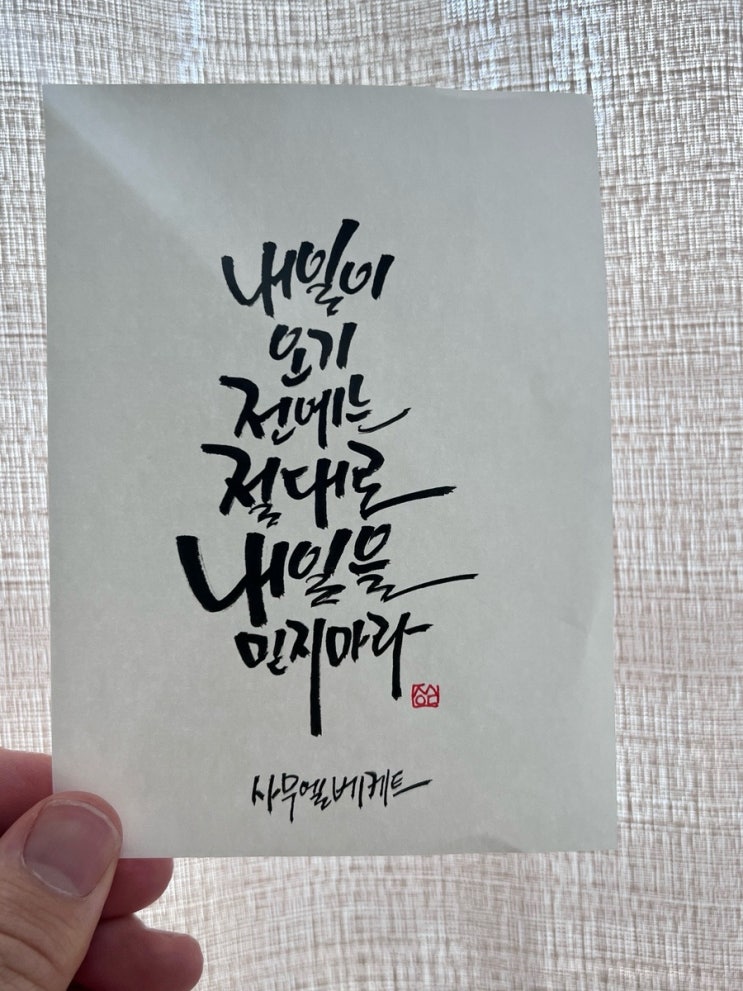 내일이
오기
전에는
절대로
내일을
믿지마라
사무엘베케트